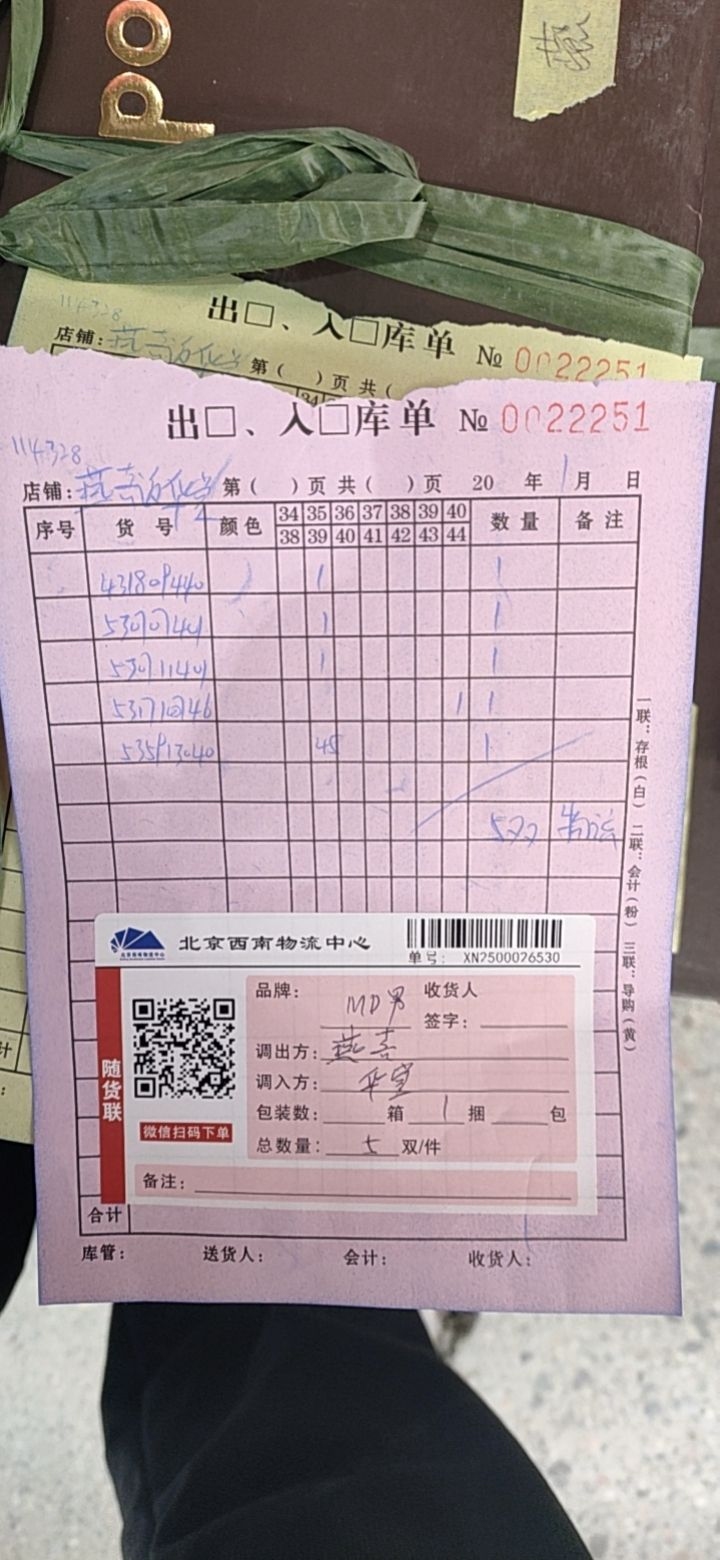 po
出□、入□库单 № 0022251
店铺: 第( )页 共(
出□、入□库单 № 0022251
114328
店铺: 燕喜 第( )页 共( )页 20 年 1月 日
序号 货号 颜色 34 35 36 37 38 39 40 数量 备注
38 39 40 41 42 43 44
431809440 1 1
53907401 1 1
53911401 1 1
1 1
535913040 45 1
5双
一联:存根(白) 二联:会计(粉) 三联:导购(黄)
北京西南物流中心
单号: XN2500026530
随货联
微信扫码下单
品牌: MD男 收货人
签字:
调出方: 燕喜
调入方: 华宣
包装数: 箱 1 捆 包
总数量: 5 双/件
备注:
合计
库管: 送货人: 会计: 收货人: